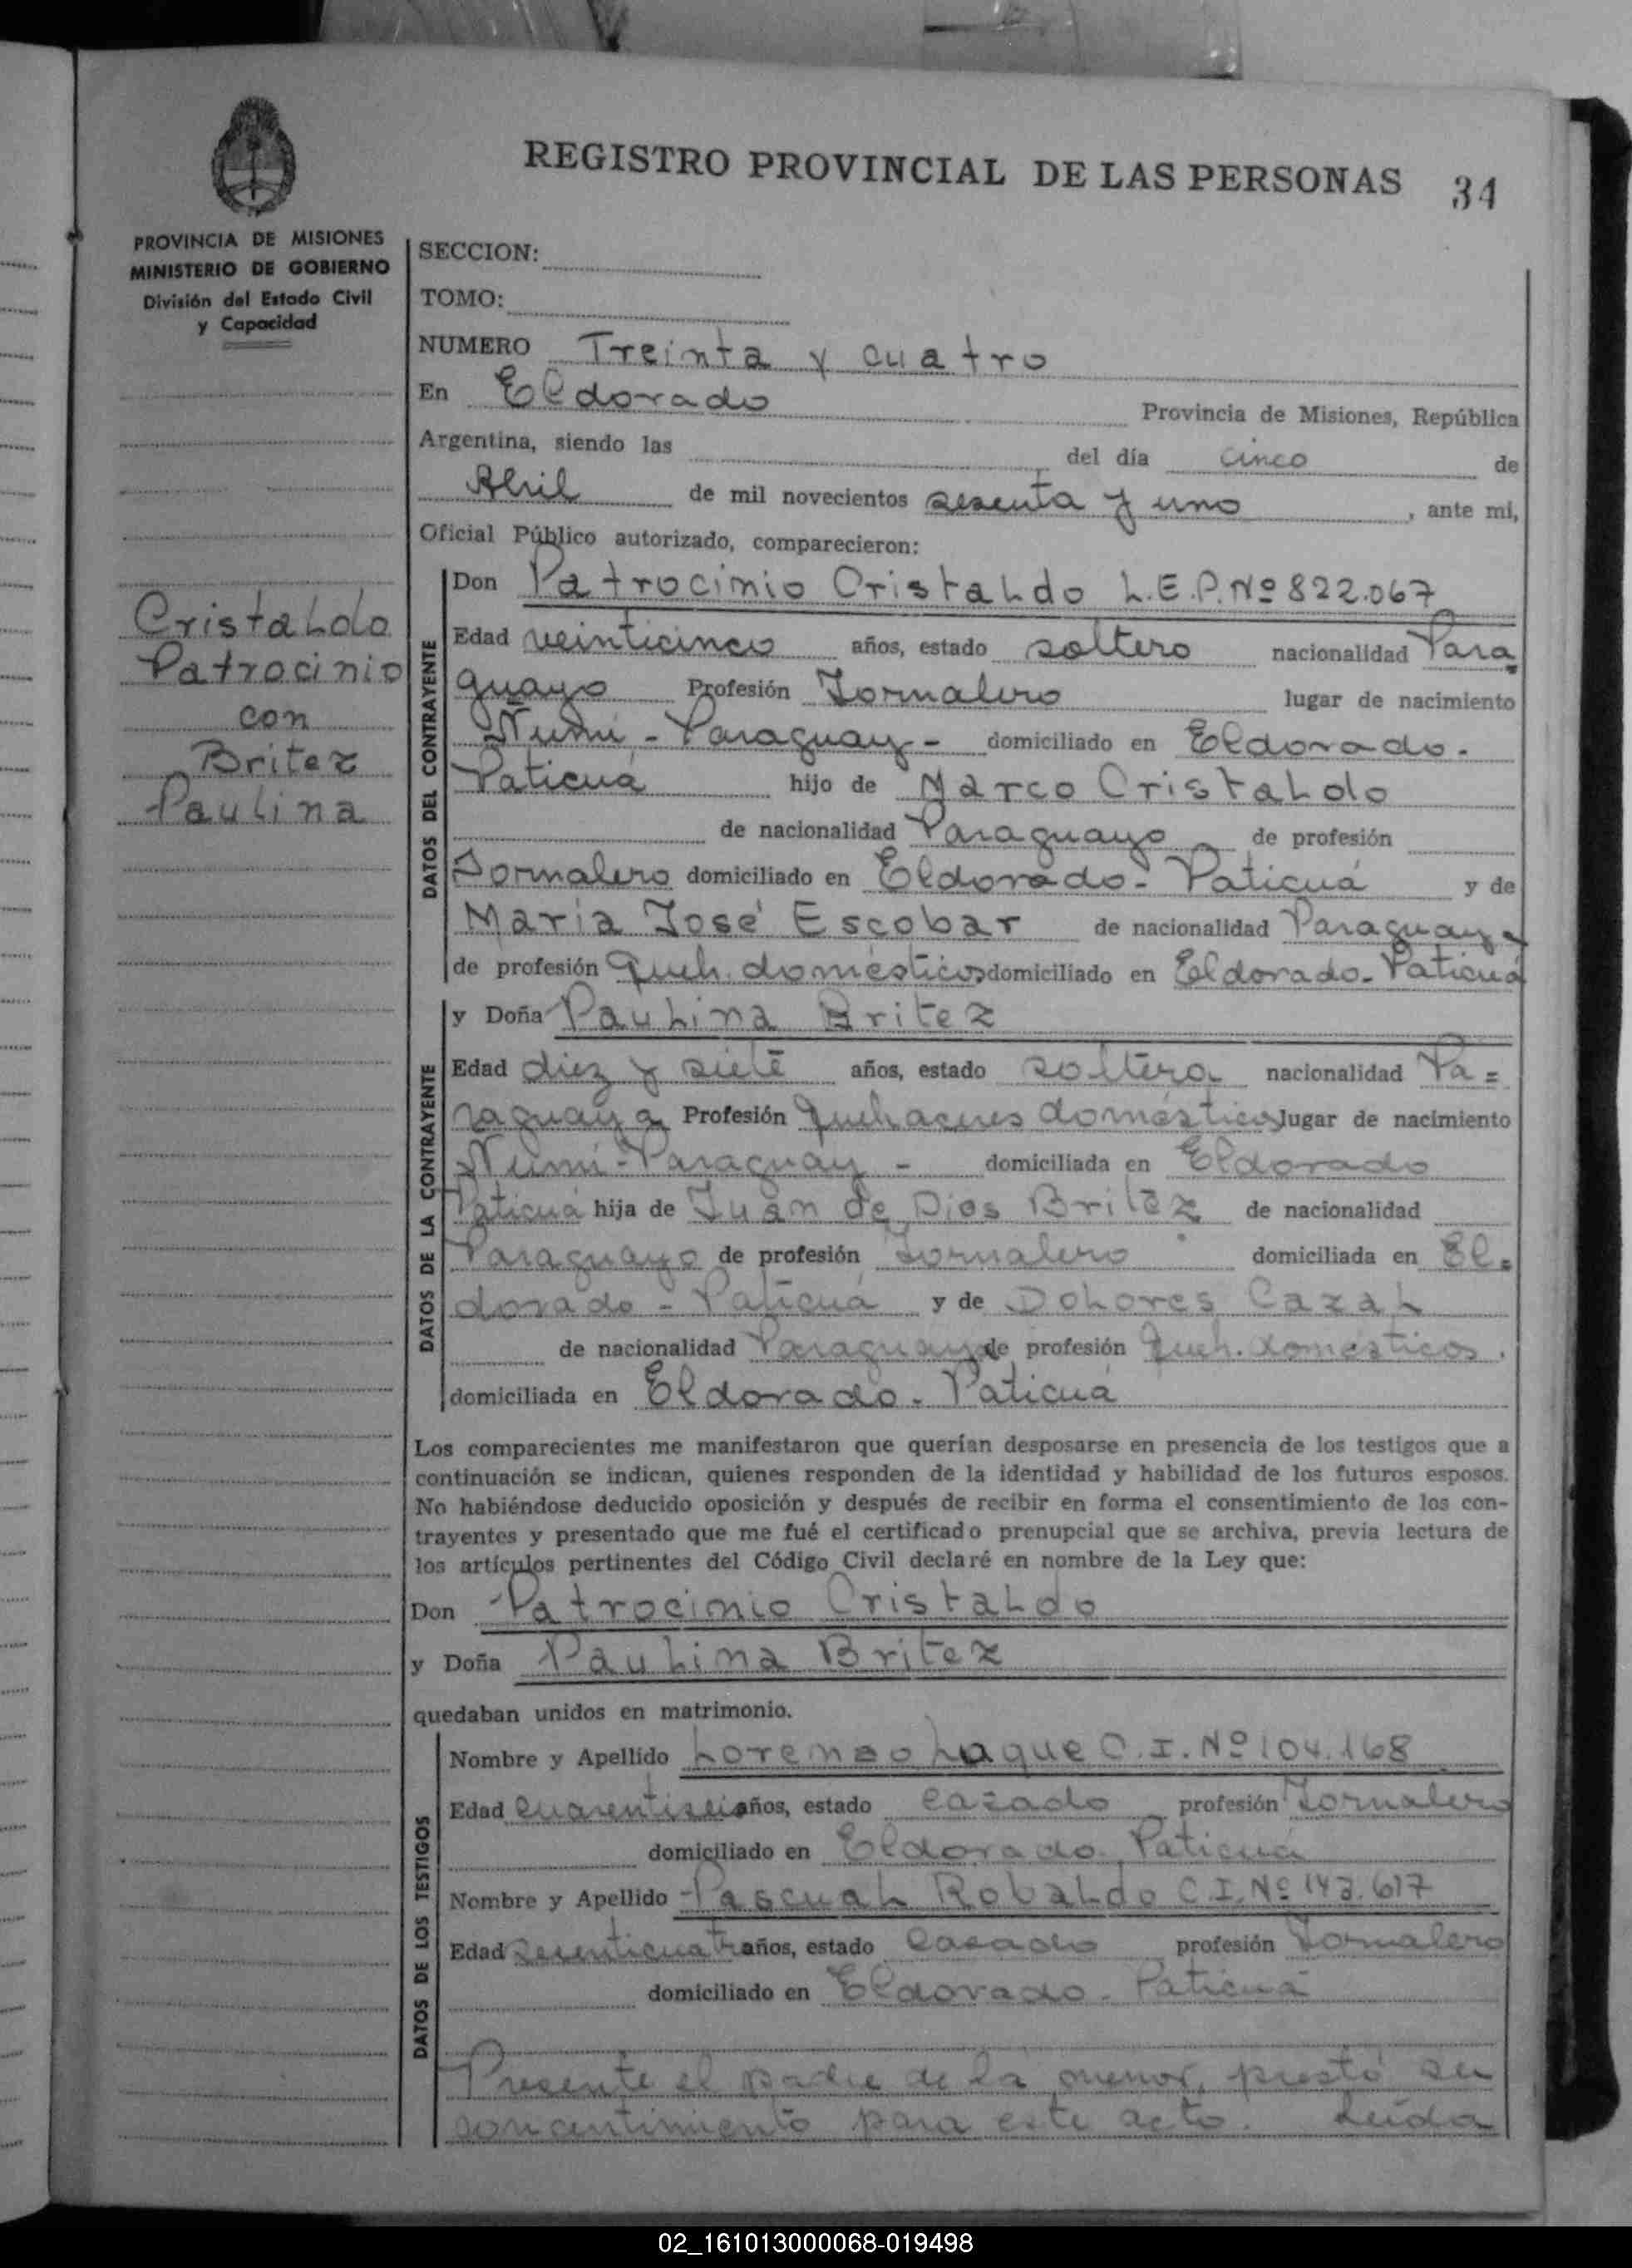 REGISTRO PROVINCIAL DE LAS PERSONAS 34
PROVINCIA DE MISIONES
MINISTERIO DE GOBIERNO
División del Estado Civil
y Capacidad
Cristaldo
Patrocinio
con
Britez
Paulina
SECCION:
TOMO:
NUMERO Treinta y cuatro
En Eldorado Provincia de Misiones, República
Argentina, siendo las del día cinco de
Abril de mil novecientos sesenta y uno, ante mí,
Oficial Público autorizado, comparecieron:
DATOS DEL CONTRAYENTE
Don Patrocinio Cristaldo L.E.P.Nº 822.067
Edad veinticinco años, estado soltero nacionalidad Para=
guayo Profesión Jornalero lugar de nacimiento
Ñumí - Paraguay - domiciliado en Eldorado -
Paticuá hijo de Marco Cristaldo
de nacionalidad Paraguayo de profesión
Jornalero domiciliado en Eldorado - Paticuá y de
María José Escobar de nacionalidad Paraguaya
de profesión Queh. domésticos domiciliado en Eldorado - Paticuá
DATOS DE LA CONTRAYENTE
y Doña Paulina Britez
Edad diez y siete años, estado soltera nacionalidad Pa=
raguaya Profesión Quehaceres domésticos lugar de nacimiento
Ñumí - Paraguay - domiciliada en Eldorado
Paticuá hija de Juan de Dios Britez de nacionalidad
Paraguayo de profesión Jornalero domiciliada en El=
dorado - Paticuá y de Dolores Cazal
de nacionalidad Paraguaya de profesión Queh. domésticos.
domiciliada en Eldorado - Paticuá
Los comparecientes me manifestaron que querían desposarse en presencia de los testigos que a
continuación se indican, quienes responden de la identidad y habilidad de los futuros esposos.
No habiéndose deducido oposición y después de recibir en forma el consentimiento de los con-
trayentes y presentado que me fué el certificado prenupcial que se archiva, previa lectura de
los artículos pertinentes del Código Civil declaré en nombre de la Ley que:
Don Patrocinio Cristaldo
y Doña Paulina Britez
quedaban unidos en matrimonio.
DATOS DE LOS TESTIGOS
Nombre y Apellido Lorenzo Laque C.I. Nº 104.168
Edad cuarentiseis años, estado cazado profesión Jornalero
domiciliado en Eldorado - Paticuá
Nombre y Apellido Pascual Robaldo C.I. Nº 143.617
Edad años, estado casado profesión Jornalero
domiciliado en Eldorado - Paticuá
Presente el padre de la menor, prestó su
concentimiento para este acto. Leída
02_161013000068-019498